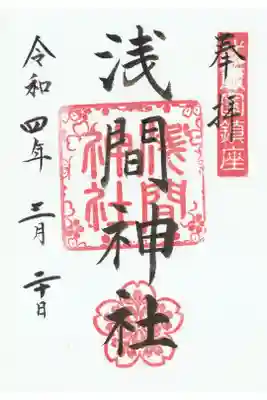 奉拝
鎮座
浅間神社
浅間神社
令和四年三月二十日